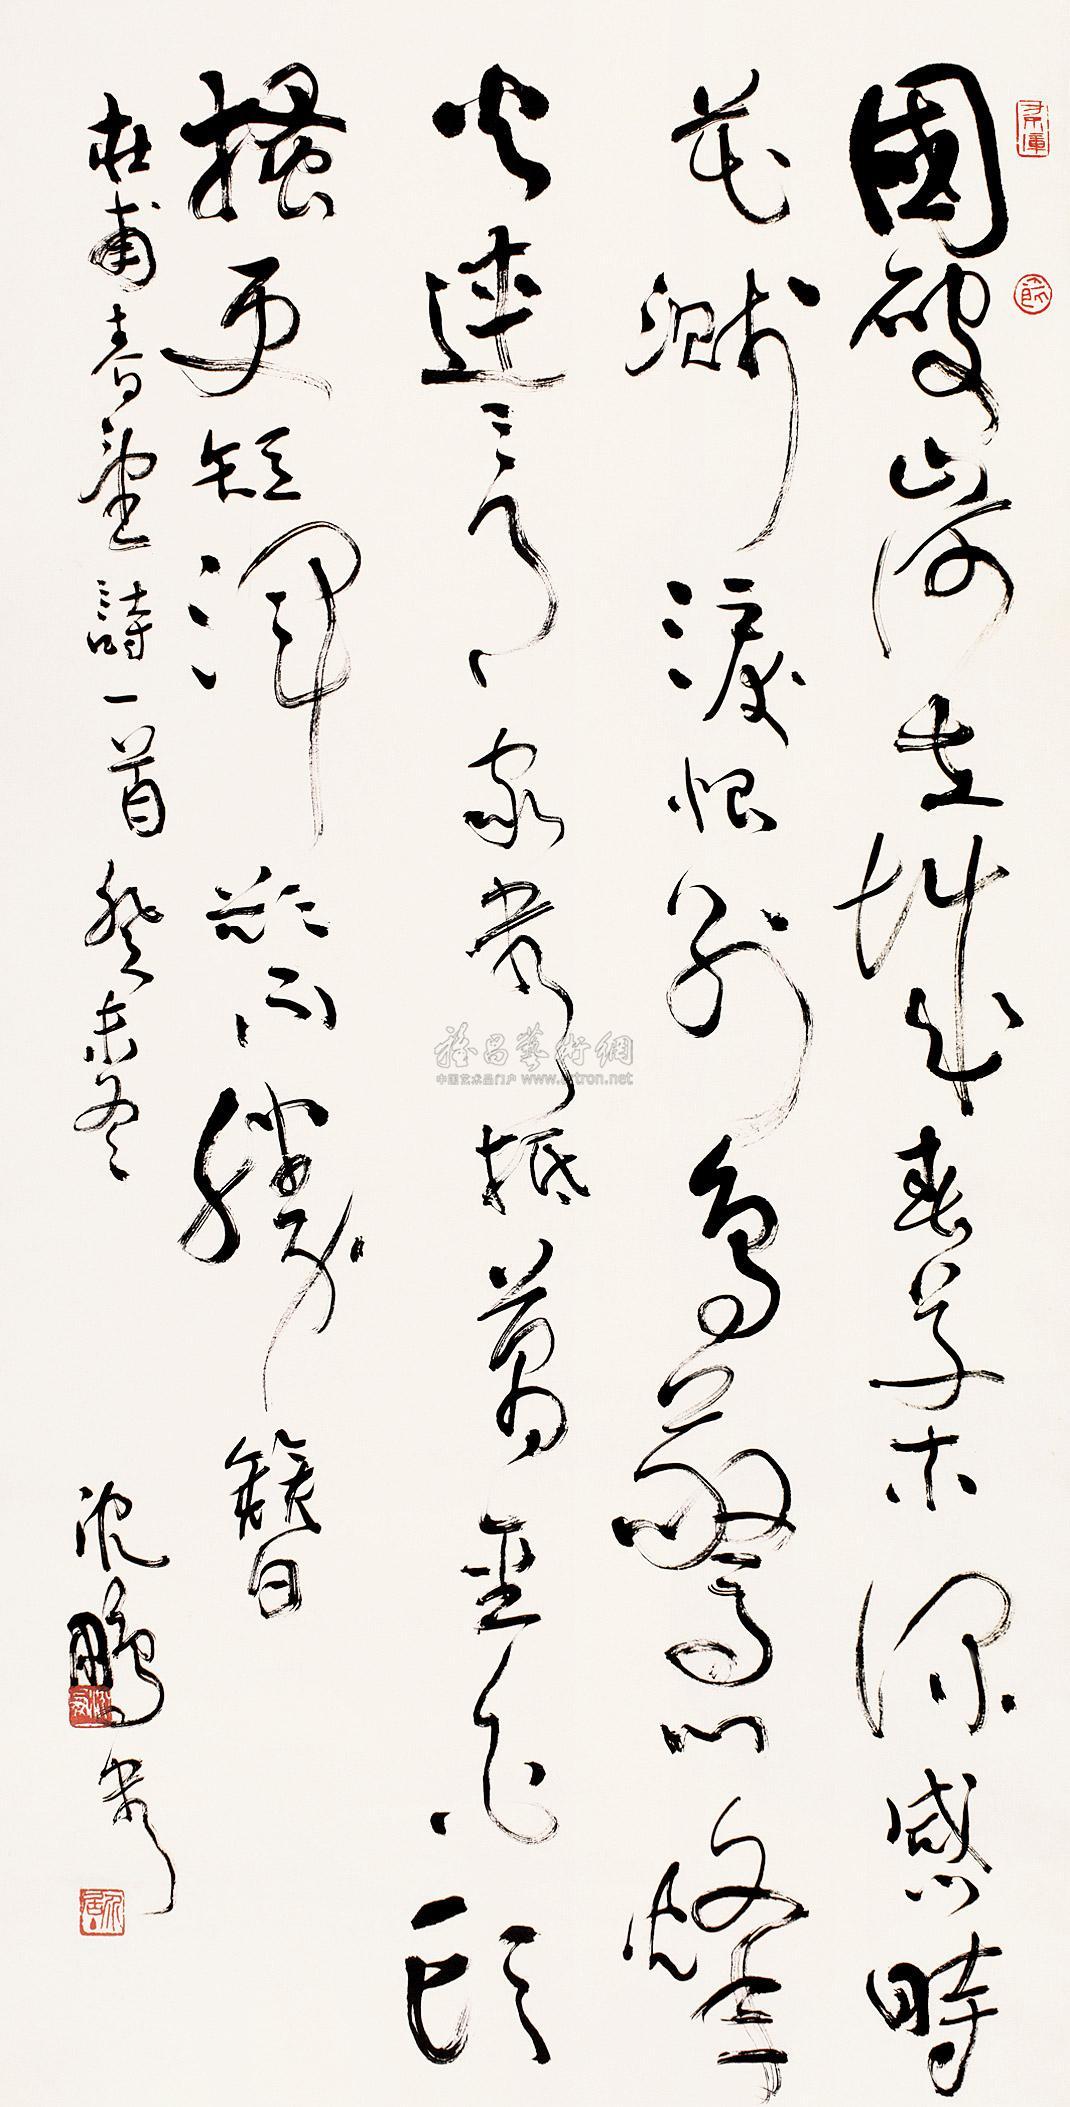 國破山河在城春草木深感時
花濺淚恨別鳥驚心烽
火連三月家書抵萬金白頭
搔更短渾欲不勝簪
杜甫春望詩一首癸未冬
沈鵬書
雅昌藝術網
中国艺术品门户 www.artron.net